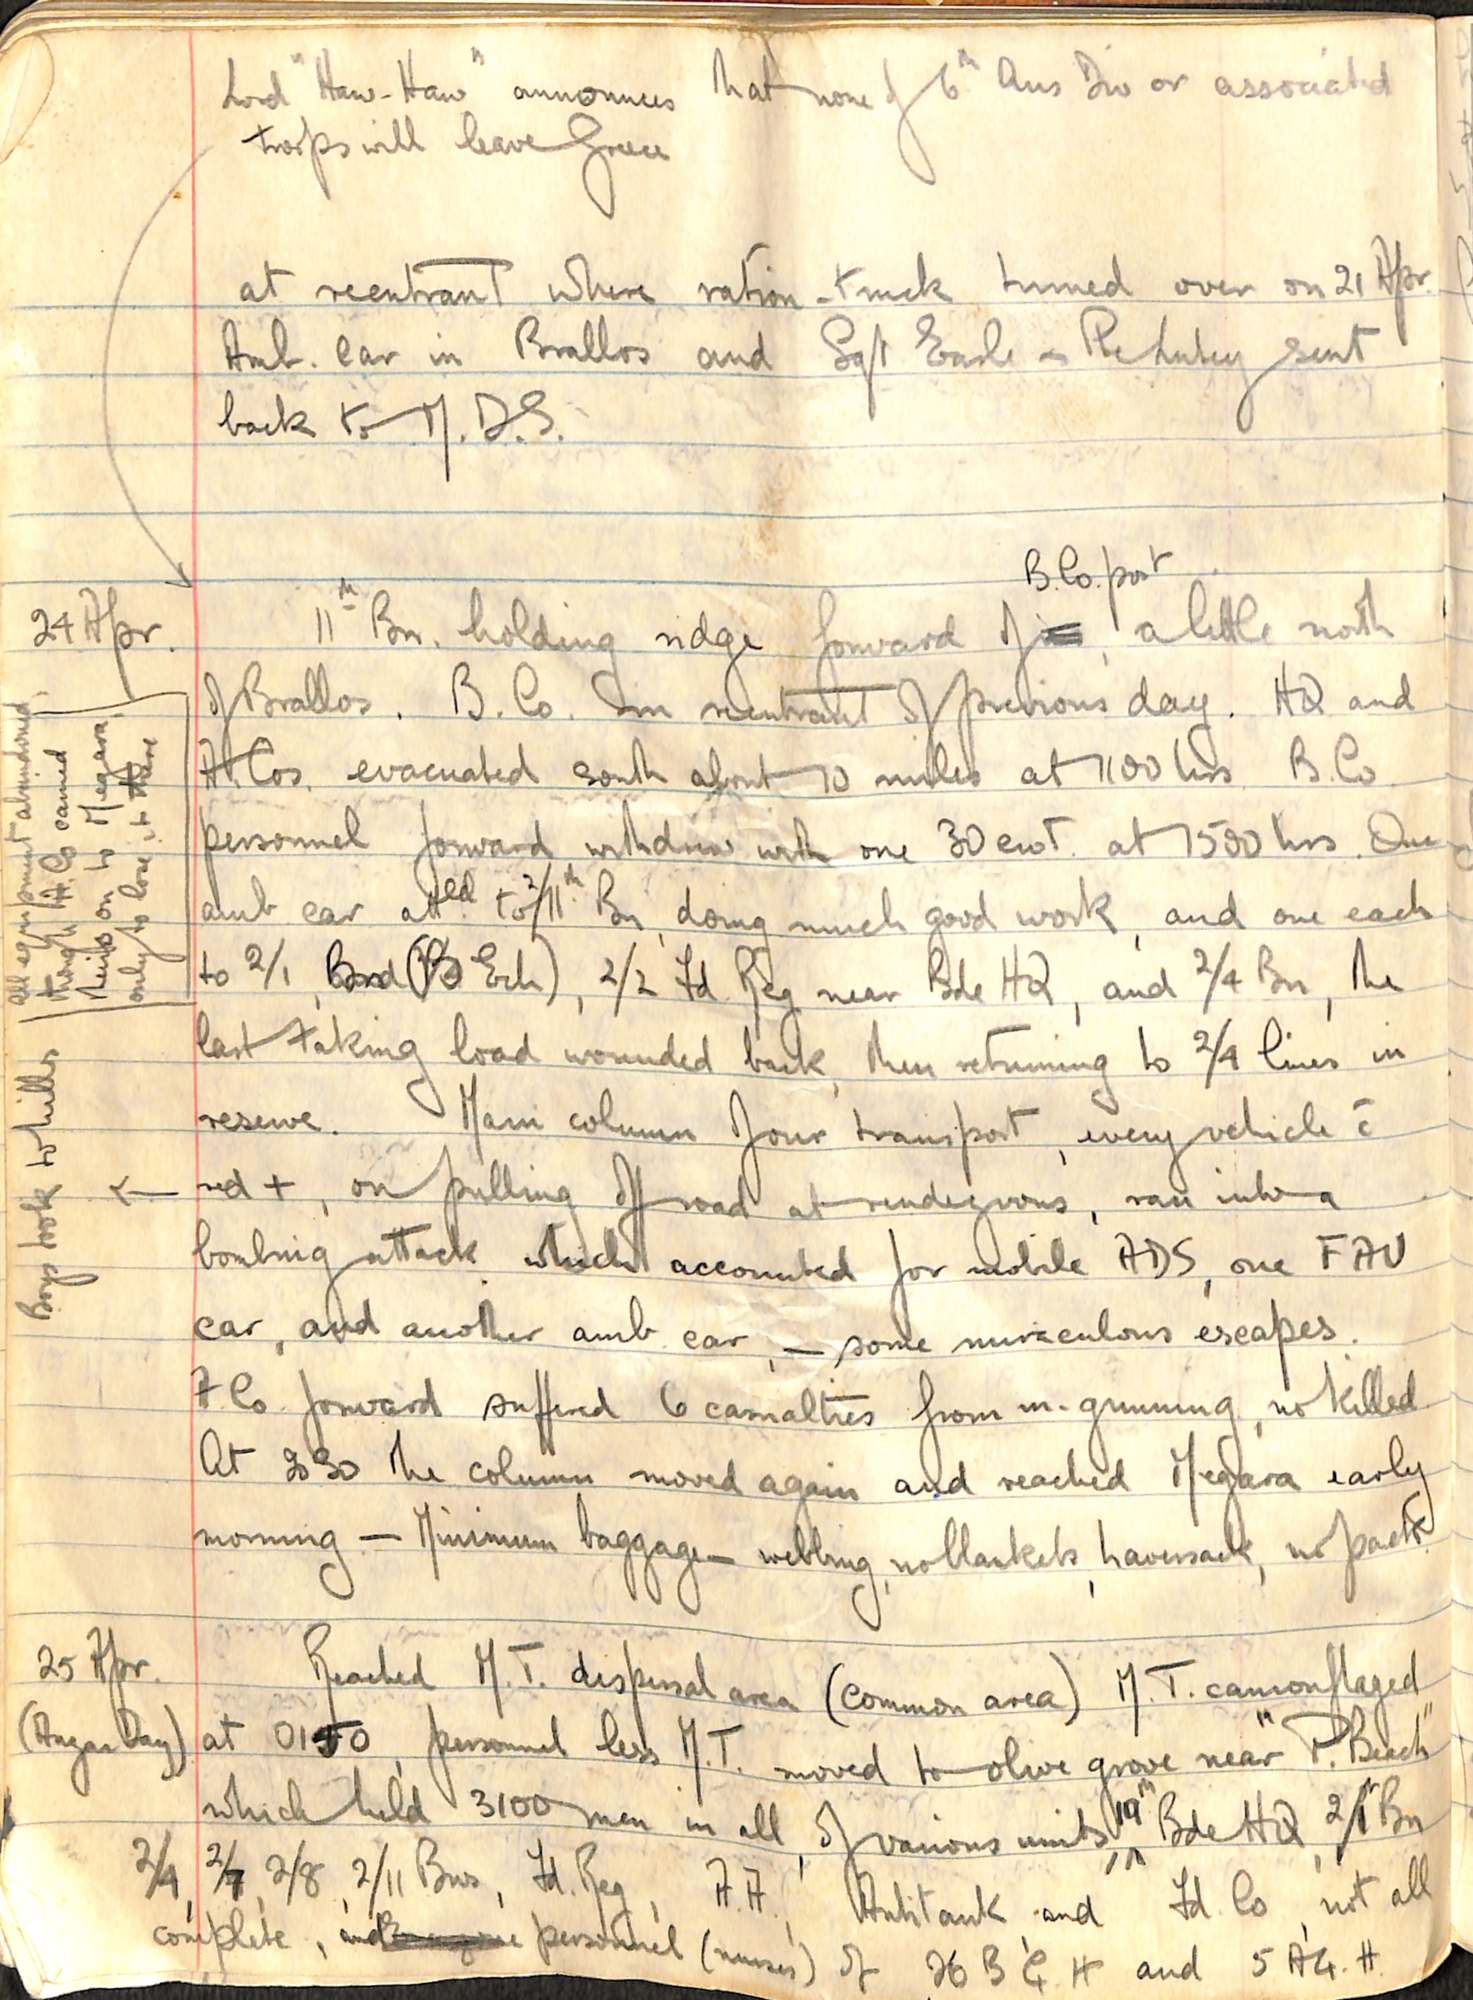 Lord "Haw-Haw" announces that none of 6th Aus Div or associated
troops will leave Greece
at reentrant where ration-truck turned over on 21 Apr.
Amb. Car in Brallos and Sgt Earle & Pte Lutey sent
back to M.D.S.
B.Co. post
24 Apr. 11th Bn. holding ridge forward of, a little north
of Brallos. B. Co. in reentrant of previous day. HQ and
A.Cos. evacuated south about 10 miles at 1100 hrs B.Co
personnel forward withdrew with one 30 cwt. at 1500 hrs. One
amb car att'ed. to 2/11th Bn, doing much good work, and one each
to 2/1, (B Ech), 2/2 Fd. Reg near Bde HQ, and 2/4 Bn, the
last taking load wounded back, then returning to 2/4 lines in
reserve. Main column of our transport, every vehicle c̄
red +, on pulling off road at rendezvous, ran into a
bombing attack which accounted for mobile ADS, one FAU
car, and another amb car, — some miraculous escapes.
A Co. forward suffered 6 casualties from m-gunning, no killed.
At 2030 the column moved again and reached Megara early
morning — Minimum baggage — webbing, no blankets, haversack, no pack.
All equipment abandoned,
though A. Co carried
theirs on to Megara,
only to lose it there
Boys took to hills
25 Apr. Reached M.T. dispersal area (common area) M.T. camouflaged
(Anzac Day) at 0150, personnel less M.T. moved to olive grove near "P. Beach"
which held 3100 men in all, of various units, 19th Bde HQ, 2/1st Bn
2/4, 2/7, 2/8, 2/11 Bns, Fd. Reg, A.A., Antitank and Fd. Co, not all
complete, and personnel (nurses) of 26 B G H and 5 A G. H.